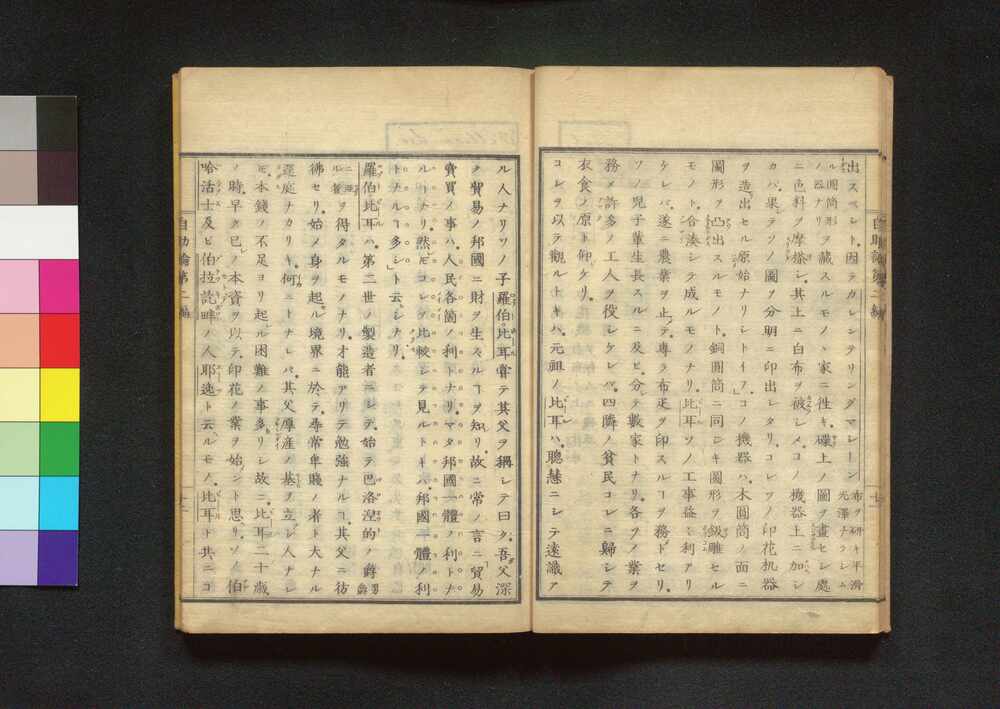 出スベシト因テカレンテリンダマレーン布ヲ研キ平滑光澤ナラシム
ル圓筒形ノ器ナリヲ藏スルモノヽ家ニ徃キ碟上ノ圖ヲ畫セシ處
ニ色料ヲ摩搽シ其上ニ白布ヲ被シメコノ機器上ニ加シ
カバ果テソノ圖ヲ分明ニ印出レタリコレソノ印花机器
ヲ造出セル原始ナリシトイフコノ機器ハ木圓筒ノ面ニ
圖形ヲ凸出スルモノト銅圓筒ニ同シキ圖形ヲ鈒雕セル
モノト合湊シテ成ルモノナリ比耳ソノ工事益〻利アリ
ケレバ遂ニ農業ヲ止テ專ラ布疋ヲ印スルヿヲ務トセリ
ソノ兒子輩生長スルニ及ビ分テ數家トナリ各ヲノ業ヲ
務メ許多ノ工人ヲ役シケレバ四隣ノ貧民コレニ歸シテ
衣食ノ原ト仰ケリ
コレヲ以テ觀ルトキハ元祖ノ比耳ハ聰慧ニシテ遠識ア
自助論第二編
ル人ナリソノ子羅伯比耳嘗テ其父ヲ稱シテ曰ク吾父深
ク貿易ノ邦國ニ財ヲ生スルヿヲ知リ故ニ常ノ言ニ貿易
賣買ノ事ハ人民各箇ノ利トナリマタ邦國一體ノ利トナ
ルヿナリ然𪜈コレヲ比較シテ見ルトキハ邦國一體ノ利
トナルヿ多シト云シナリ
羅伯比耳ハ第二世ノ製造者ニシテ始テ巴洛涅的ノ爵男爵
ニ亞ル者ヲ得タルモノナリ才能アリテ勉強ナルヿ其父ニ彷
彿セリ始メ身ヲ起ル境界ニ於テ尋常卑賤ノ者ト大ナル
逕庭ナカリキ何ニトナレバ其父厚産ノ基ヲ立シ人ナレ
𪜈本錢ノ不足ヨリ起ル困難ノ事多リシ故ニ比耳二十歳
ノ時早ク已ノ本資ヲ以テ印花ノ業ヲ始ント思リソノ伯
哈活士及ビ伯拉訖畔ノ人耶逸ト云ルモノ比耳ト共ニコ
自助論第二編